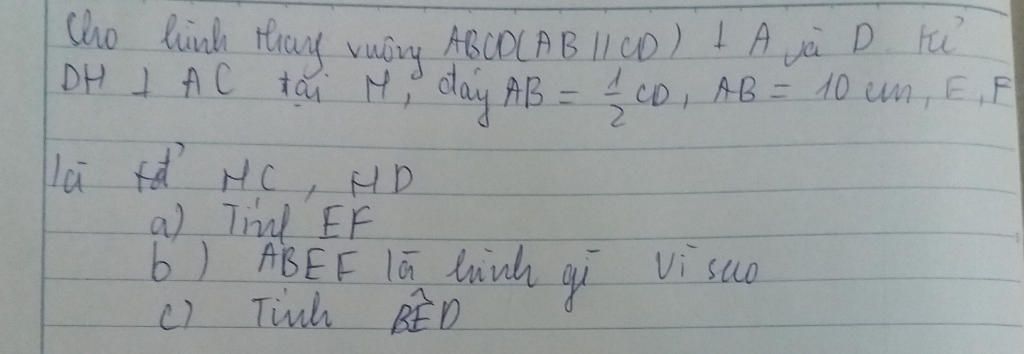 Cho hình thang vuông ABCD(AB // CD) ⊥ A và D. Kẻ
DH ⊥ AC tại H, đáy AB = 1/2 CD, AB = 10 cm, E, F
là tđ HC, HD
a) Tính EF
b) ABEF là hình gì vì sao
c) Tính BÊD